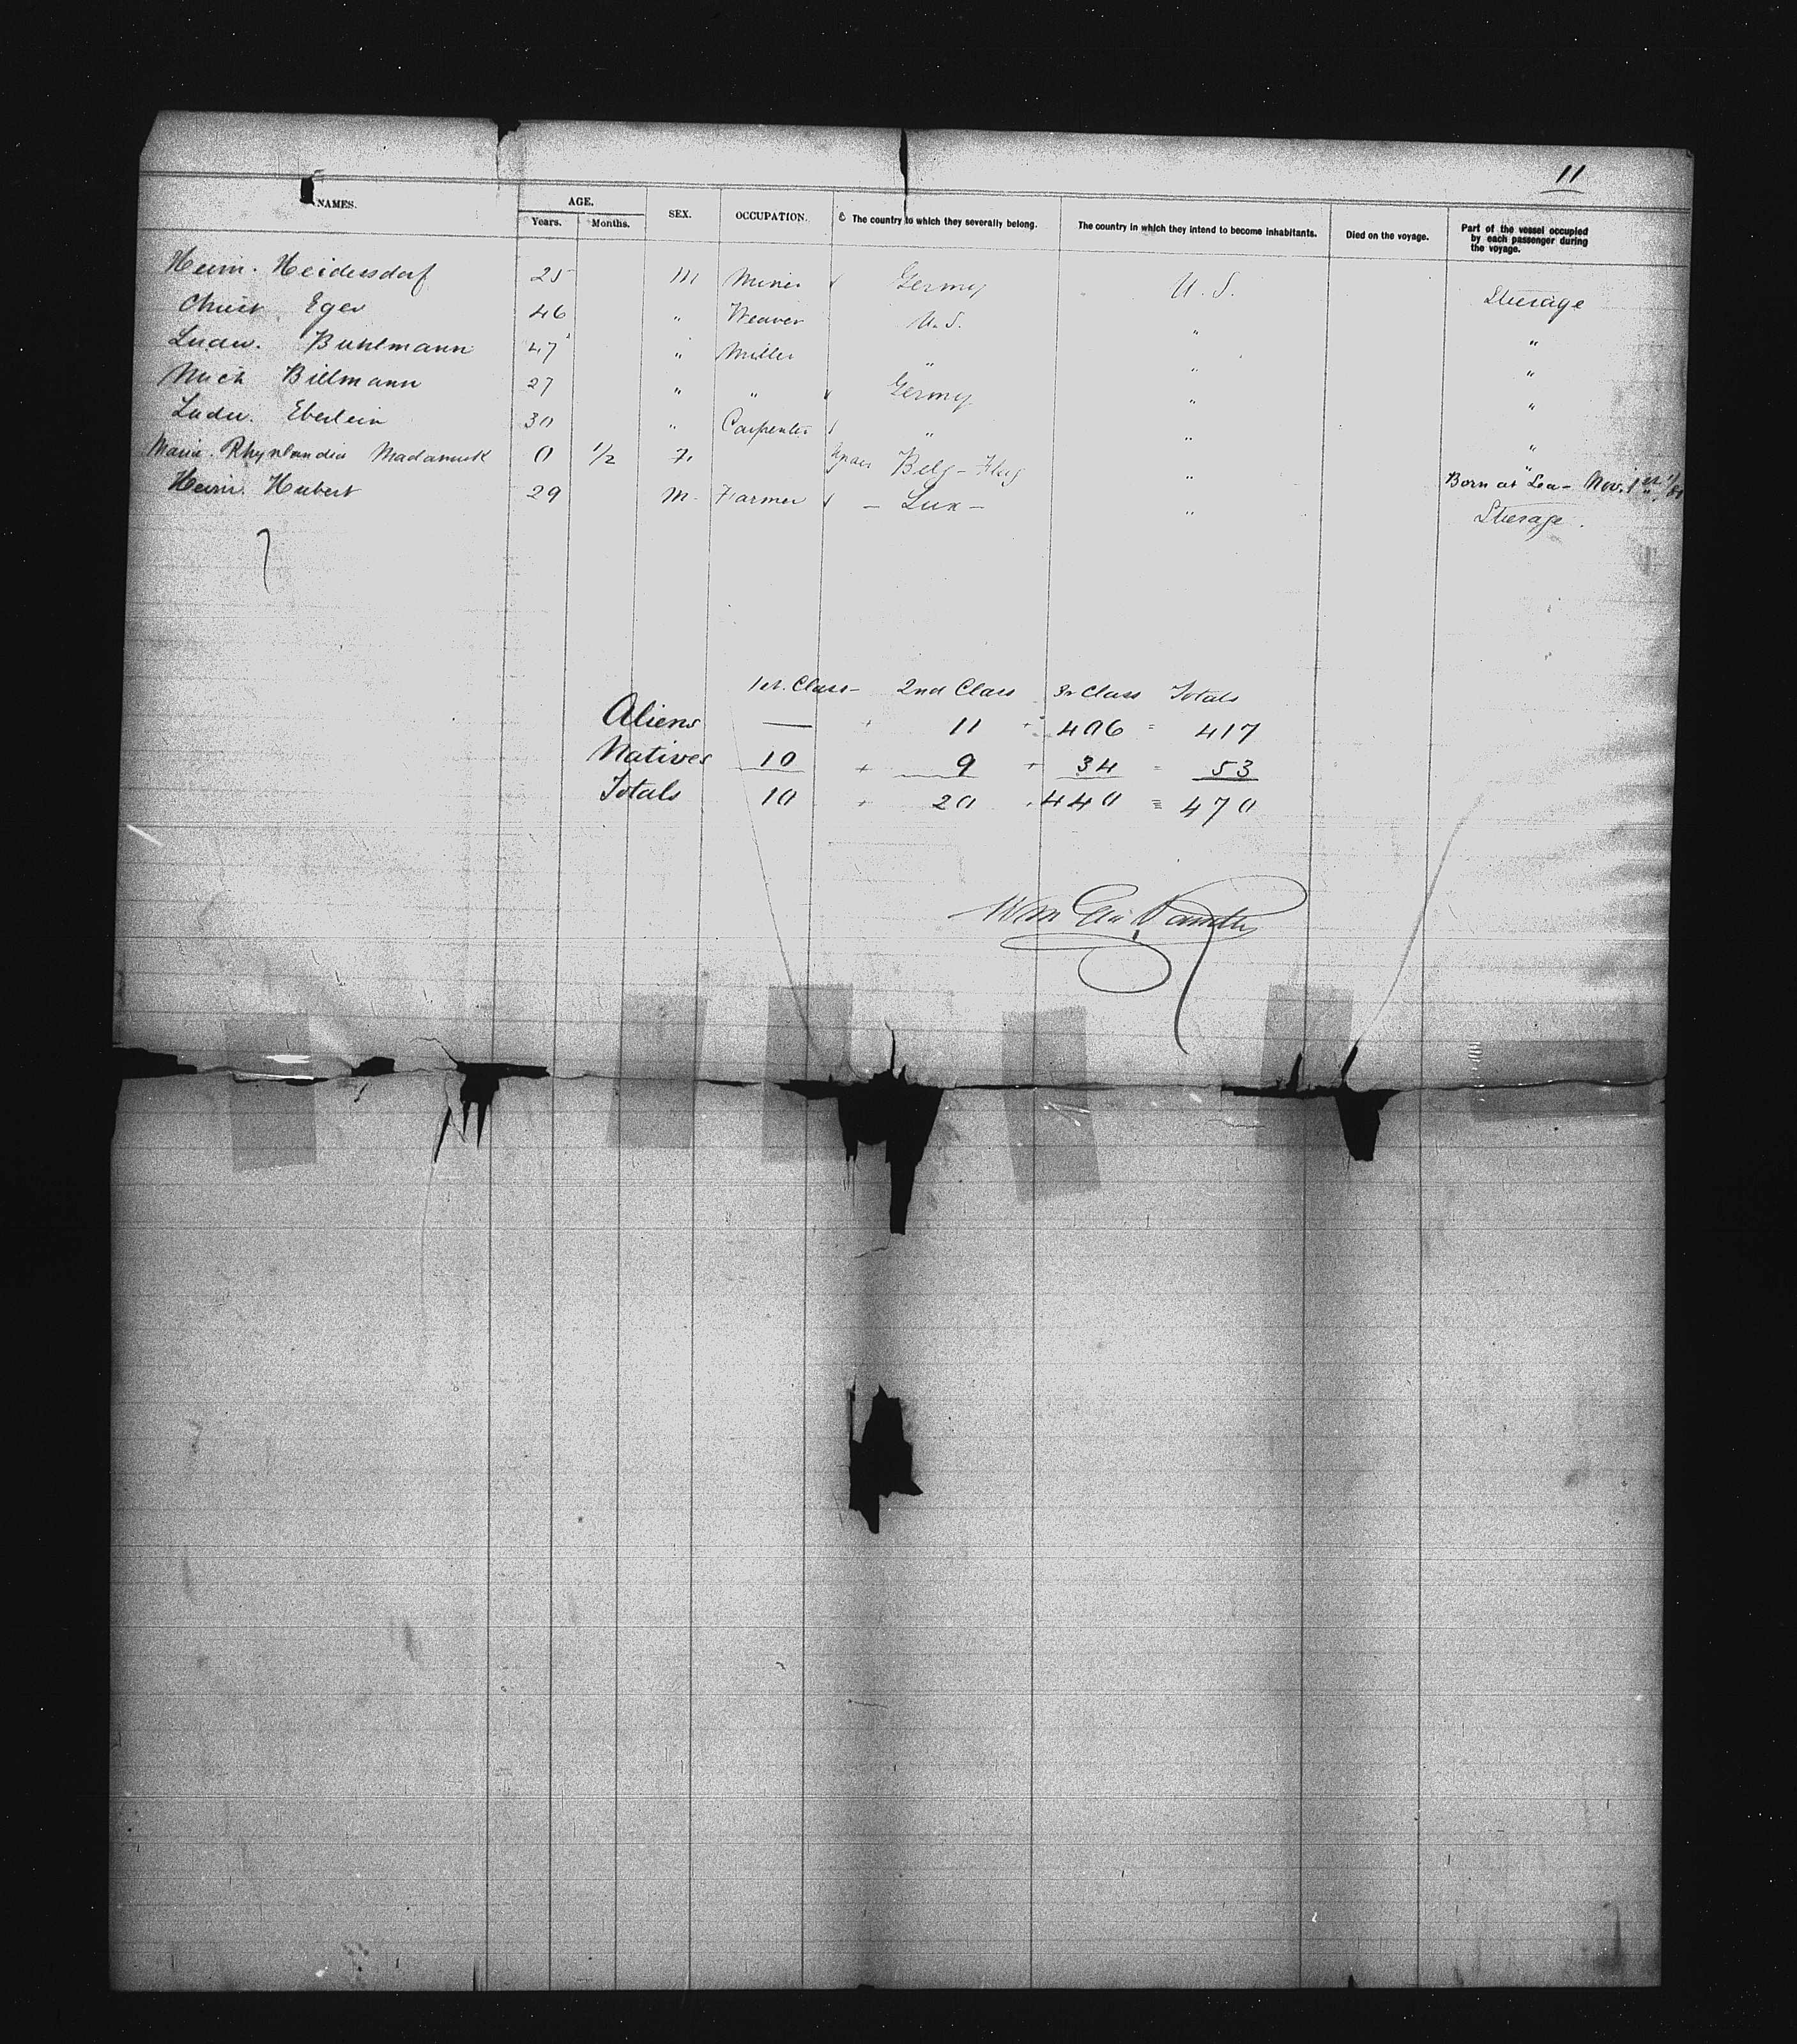 11
NAMES. AGE. SEX. OCCUPATION. The country to which they severally belong. The country in which they intend to become inhabitants. Died on the voyage. Part of the vessel occupied by each passenger during the voyage.
Years. Months.
Heinr. Heidersdorf 25 M Miner Germy U.S. Steerage
Christ Eger 46 " Weaver U.S. " "
Ludw. Buhlmann 47 " Miller " " "
Mich Billmann 27 " " Germy " "
Ludw. Eberlein 30 " Carpenter " " "
Maria Rhynlandia 0 1/2 F. Belg - Flag " Born at Sea - Nov. 1st
Heinr. Hubert 29 M. Farmer - Lux - " Steerage.
1st. Class - 2nd Class 3r Class Totals
Aliens — + 11 + 406 = 417
Natives 10 + 9 + 34 = 53
Totals 10 + 20 + 440 = 470